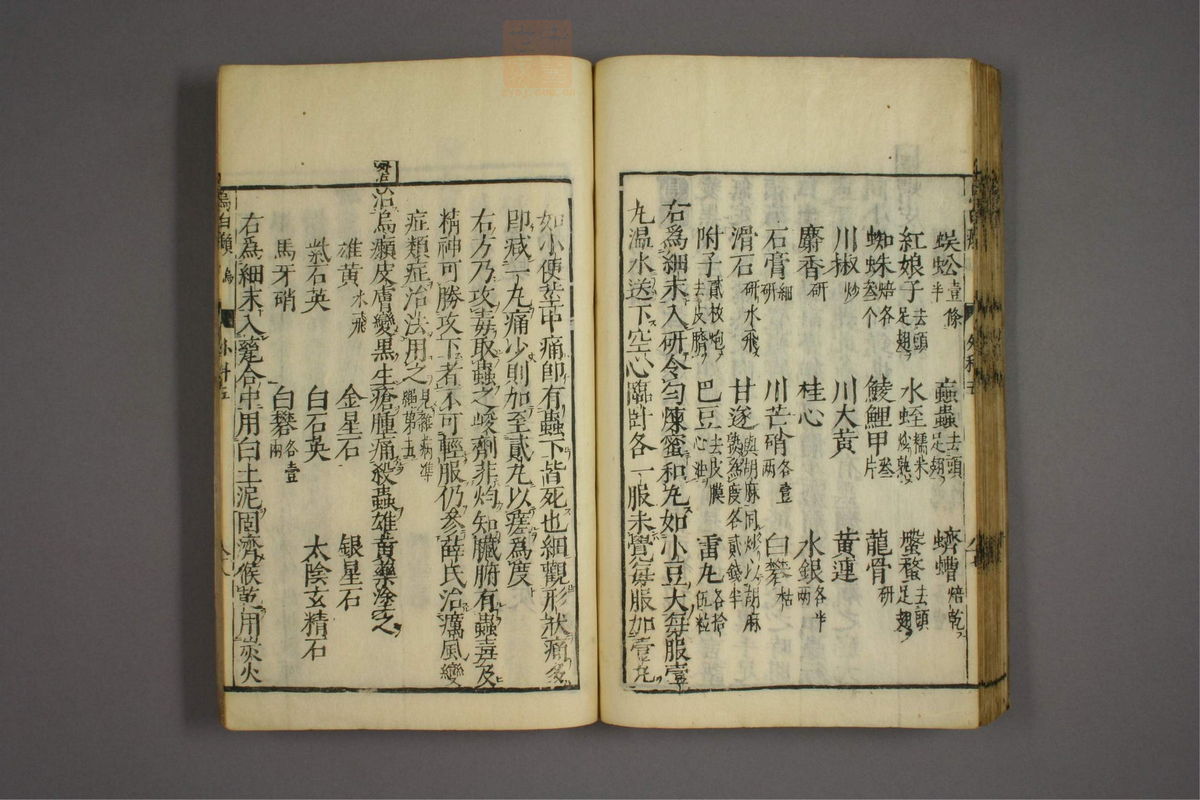 蜈蚣壹條 蝱蟲去頭足翅 蠐螬焙乾
紅娘子去頭足翅 水蛭糯米炒熟 蟹蝥去頭足翅
蜘蛛焙各叁个 鯪鯉甲叁片 龍骨研
川椒炒 川大黃 黃連
麝香研 桂心 水銀各半兩
石膏細研 川芒硝各壹兩 白礬枯
滑石研水飛 甘遂與胡麻同炒以胡麻熟爲度各貳錢半
附子貳枚炮去皮臍 巴豆去皮膜心油 雷丸各拾伍粒
右爲細末入研令勻煉蜜和丸如小豆大每服壹
丸温水送下空心臨卧各一服未覺每服加壹丸
如小便莖中痛卽有蟲下皆死也細觀形狀痛多
卽减一丸痛少則加至貳丸以瘥爲度
右方乃攻毒取蟲之峻劑非灼知臟腑有蟲毒及
精神可勝攻下者不可輕服仍參薛氏治癘風變
症類症治法用之見雜病準繩第五
治烏癩皮膚變黑生瘡腫痛殺蟲雄黃藥塗之
雄黃水飛 金星石 銀星石
紫石英 白石英 太陰玄精石
馬牙硝 白礬各壹兩
右爲細末入籠合中用白土泥固濟候乾用炭火
烏白癩